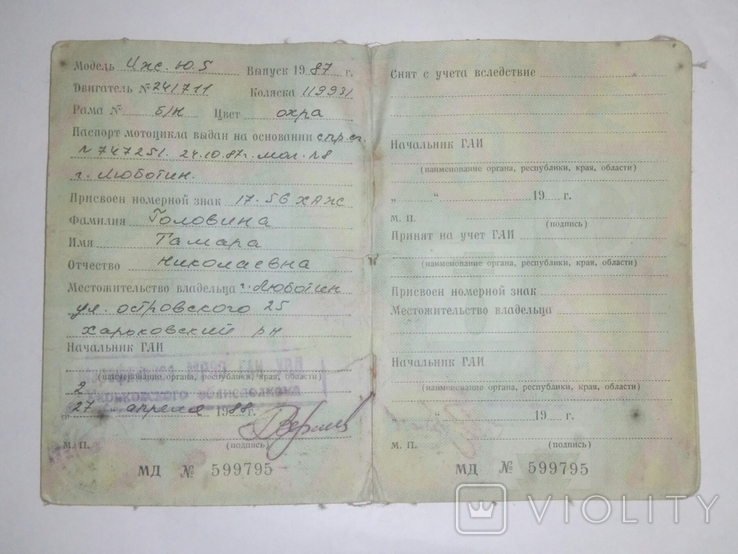 Модель Иж. Ю.5 Выпуск 1987 г.
Двигатель № 241711 Коляска 119931
Рама № б/н Цвет охра
Паспорт мотоцикла выдан на основании спр. сч.
№ 747251. 24.10.87г. маг. №8
г. Люботин.
Присвоен номерной знак 17-56 ХАЖ
Фамилия Головина
Имя Тамара
Отчество Николаевна
Местожительство владельца г. Люботин
ул. островского 25
Харьковский рн
Начальник ГАИ
(наименование органа, республики, края, области)
27 апреля 1988 г.
М. П. (подпись)
МД № 599795
Снят с учета вследствие
Начальник ГАИ
(наименование органа, республики, края, области)
„ “ 19 г.
М. П. (подпись)
Принят на учет ГАИ
(наименование органа, республики, края, области)
Присвоен номерной знак
Местожительство владельца
Начальник ГАИ
(наименование органа, республики, края, области)
„ “ 19 г.
М. П. (подпись)
МД № 599795
VIOLITY